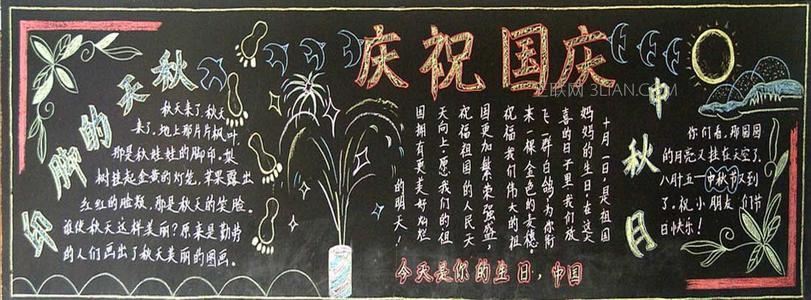 庆祝国庆
联网 3LIAN.COM
秋天的脚印
秋天来了,秋天
来了,地上那片片枫叶,
那是秋娃娃的脚印。梨
树挂起金黄的灯笼,苹果露出
红红的脸颊,那是秋天的笑脸。
谁使秋天这样美丽?原来是勤劳
的人们画出了秋天美丽的图画。
十月一日是祖国
妈妈的生日,在这大
喜的日子里,我们放
飞一群白鸽,为你衔
来一棵金色的麦穗,
祝福我们伟大的祖
国更加繁荣强盛,
祝福祖国的人民天
天向上,愿我们的祖
国拥有更美好灿烂
的明天!
今天是你的生日,中国
中秋月
你们看,那圆圆
的月亮又挂在天空了,
八月十五—中秋节又到
了,祝小朋友们节
日快乐!